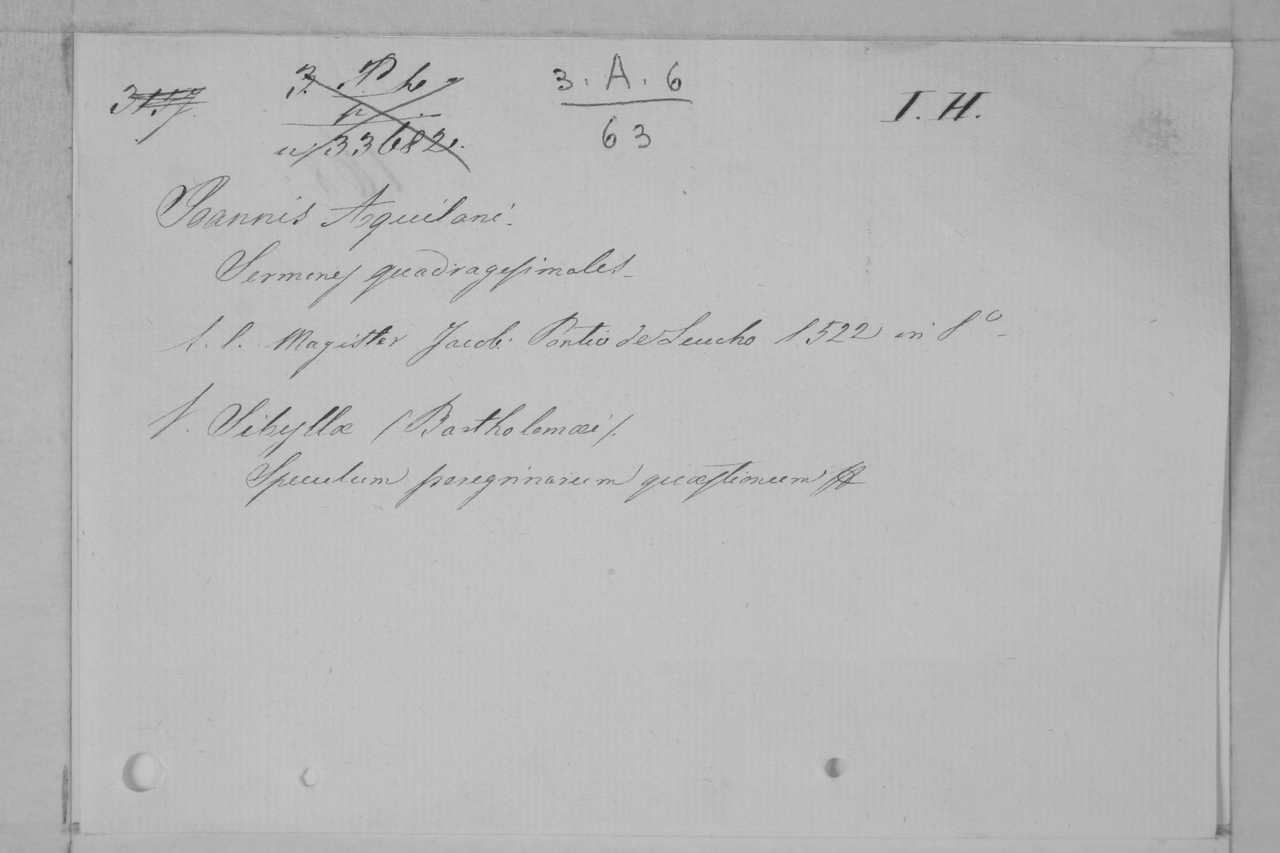 3. A. 6
63
I. H.
Joannis Aquilani.
Sermones quadragesimales
s. l. Magister Jacob. Pontio de Leucho 1522 in 8º
V. Sibyllæ (Bartholomæi).
Speculum peregrinarum quæstionum